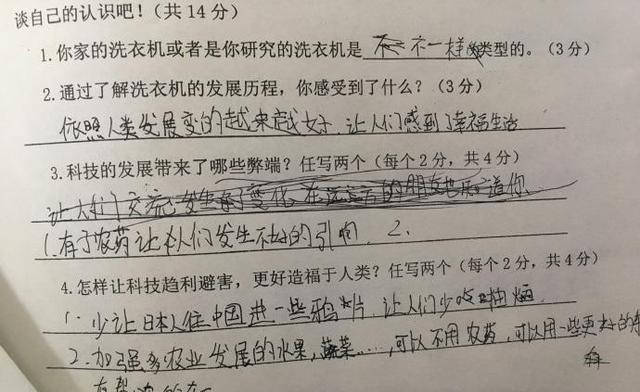 谈自己的认识吧！（共 14 分）
1.你家的洗衣机或者是你研究的洗衣机是 不一样 类型的。（3 分）
2.通过了解洗衣机的发展历程，你感受到了什么？（3 分）
依照人类发展变的越来越好，让人们感到了幸福生活
3.科技的发展带来了哪些弊端？任写两个（每个 2 分，共 4 分）
让人们交流发生了变化，在远方的朋友也知道你
1.有了农药让人们发生不好的引响 2、
4.怎样让科技趋利避害，更好造福于人类？任写两个（每个 2 分，共 4 分）
1.少让日本人往中国进一些鸦片，让人们少吸抽烟
2.加强多农业发展的水果，蔬菜……，可以不用农药，可以用一些更好的东